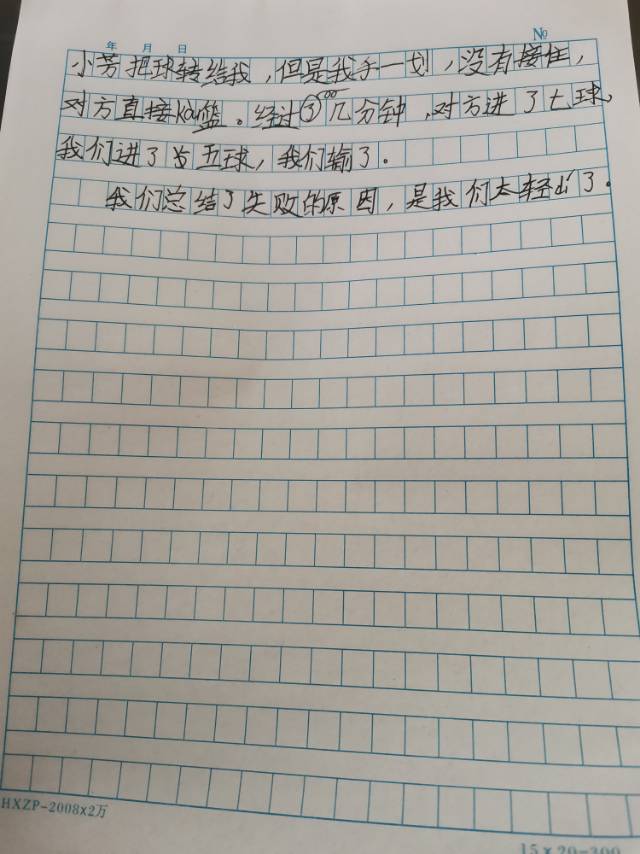 年 月 日 №
小芳把球转给我，但是我手一划，没有接住，
对方直接kòu篮。经过几分钟，对方进了七球，
我们进了五球，我们输了。
我们总结了失败的原因，是我们太轻dí了。
HXZP-2008x2万
15×20=300